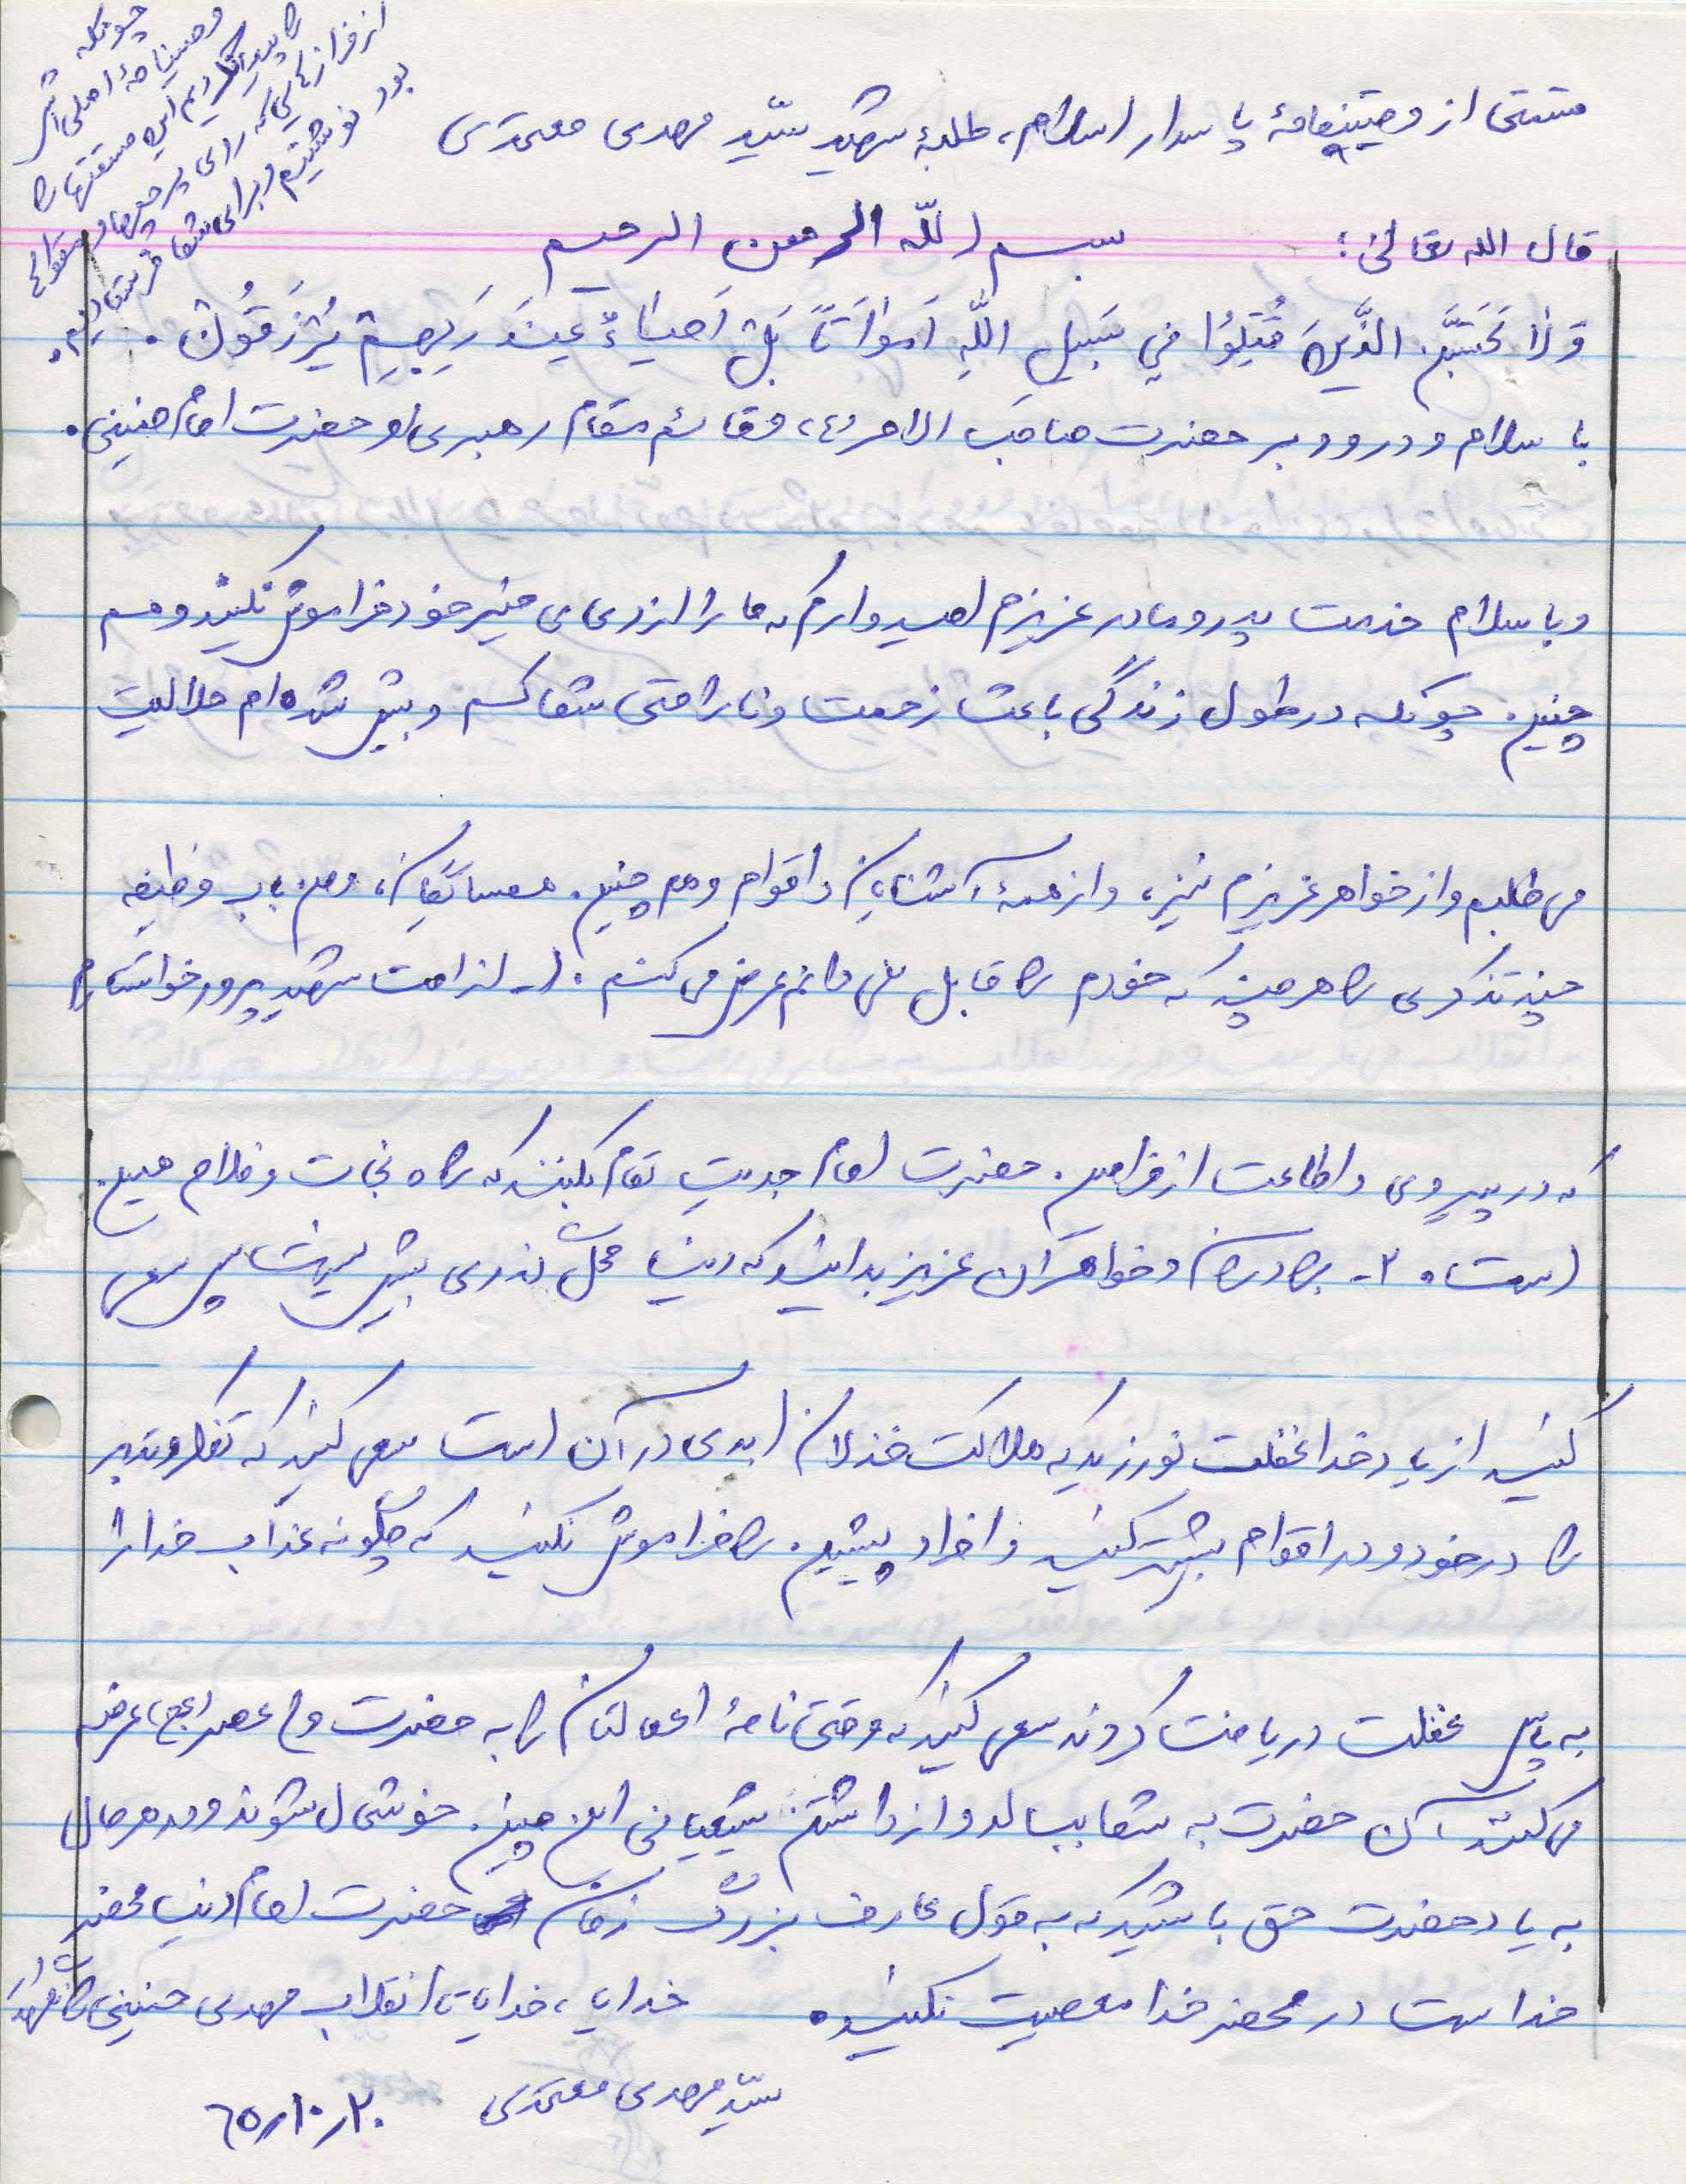 چونکه
وصیتنامهٔ اصلی اش
را پیدا نکردیم این قسمتها را
از فرازهایی که برای پرچمها و مقوا
بود نوشتیم و برای شما فرستادیم.
قسمتی از وصیتنامهٔ پاسدار اسلام، طلبهٔ شهید سیّد مهدی معتمدی
قال الله تعالی: بسم اللّه الرحمن الرحیم
وَلا تَحسَبَنَّ الَّذینَ قُتِلُوا فی سَبیلِ اللّهِ اَمواتاً بَل اَحیاءٌ عِندَ رَبِهِم یُرزَقُون.
با سلام و درود بر حضرت صاحب الامر «ع» و قائم مقام رهبری او حضرت امام خمینی.
و با سلام خدمت پدر و مادر عزیزم امیدوارم که ما را از دعای خیر خود فراموش نکنید و هم
چنین چونکه در طول زندگی باعث زحمت و ناراحتی شما کم و بیش شده ام حلالیت
می طلبم و از خواهر عزیزم نیز، و از همهٔ آشنایان و اقوام و هم چنین همسایگان، و من باب وظیفه
چند تذکری را هر چند که خودم را قابل نمی دانم عرض می کنم. ۱- از امت شهید پرور خواستارم
که در پیروی و اطاعت از فرامین حضرت امام جدیت تمام بکنند که راه نجات و فلاح همین
است. ۲- برادران و خواهران عزیز بدانید که دنیا محل گذری بیش نیست پس سعی
کنید از یاد خدا غفلت نورزید که هلاکت خذلان ابدی در آن است سعی کنید که تفکر و تدبر
را در خود و در اقوام بیشتر کنید و افراد پیشین را فراموش نکنید که چگونه عذاب خدا را
به پاس غفلت دریافت کردند سعی کنید که وقتی نامهٔ اعمالتان را به حضرت ولی عصر (عج) عرضه
می کنند آن حضرت به شما ببالد و از داشتن شیعیانی این چنین خوشحال شوند و در هر حال
به یاد حضرت حق باشید که به قول عارف بزرگ زمان حضرت امام دنیا محضر
خداست در محضر خدا معصیت نکنید. خدایا، خدایا تا انقلاب مهدی خمینی را نگهدار
سیّد مهدی معتمدی ۶۵/۱۰/۲۰